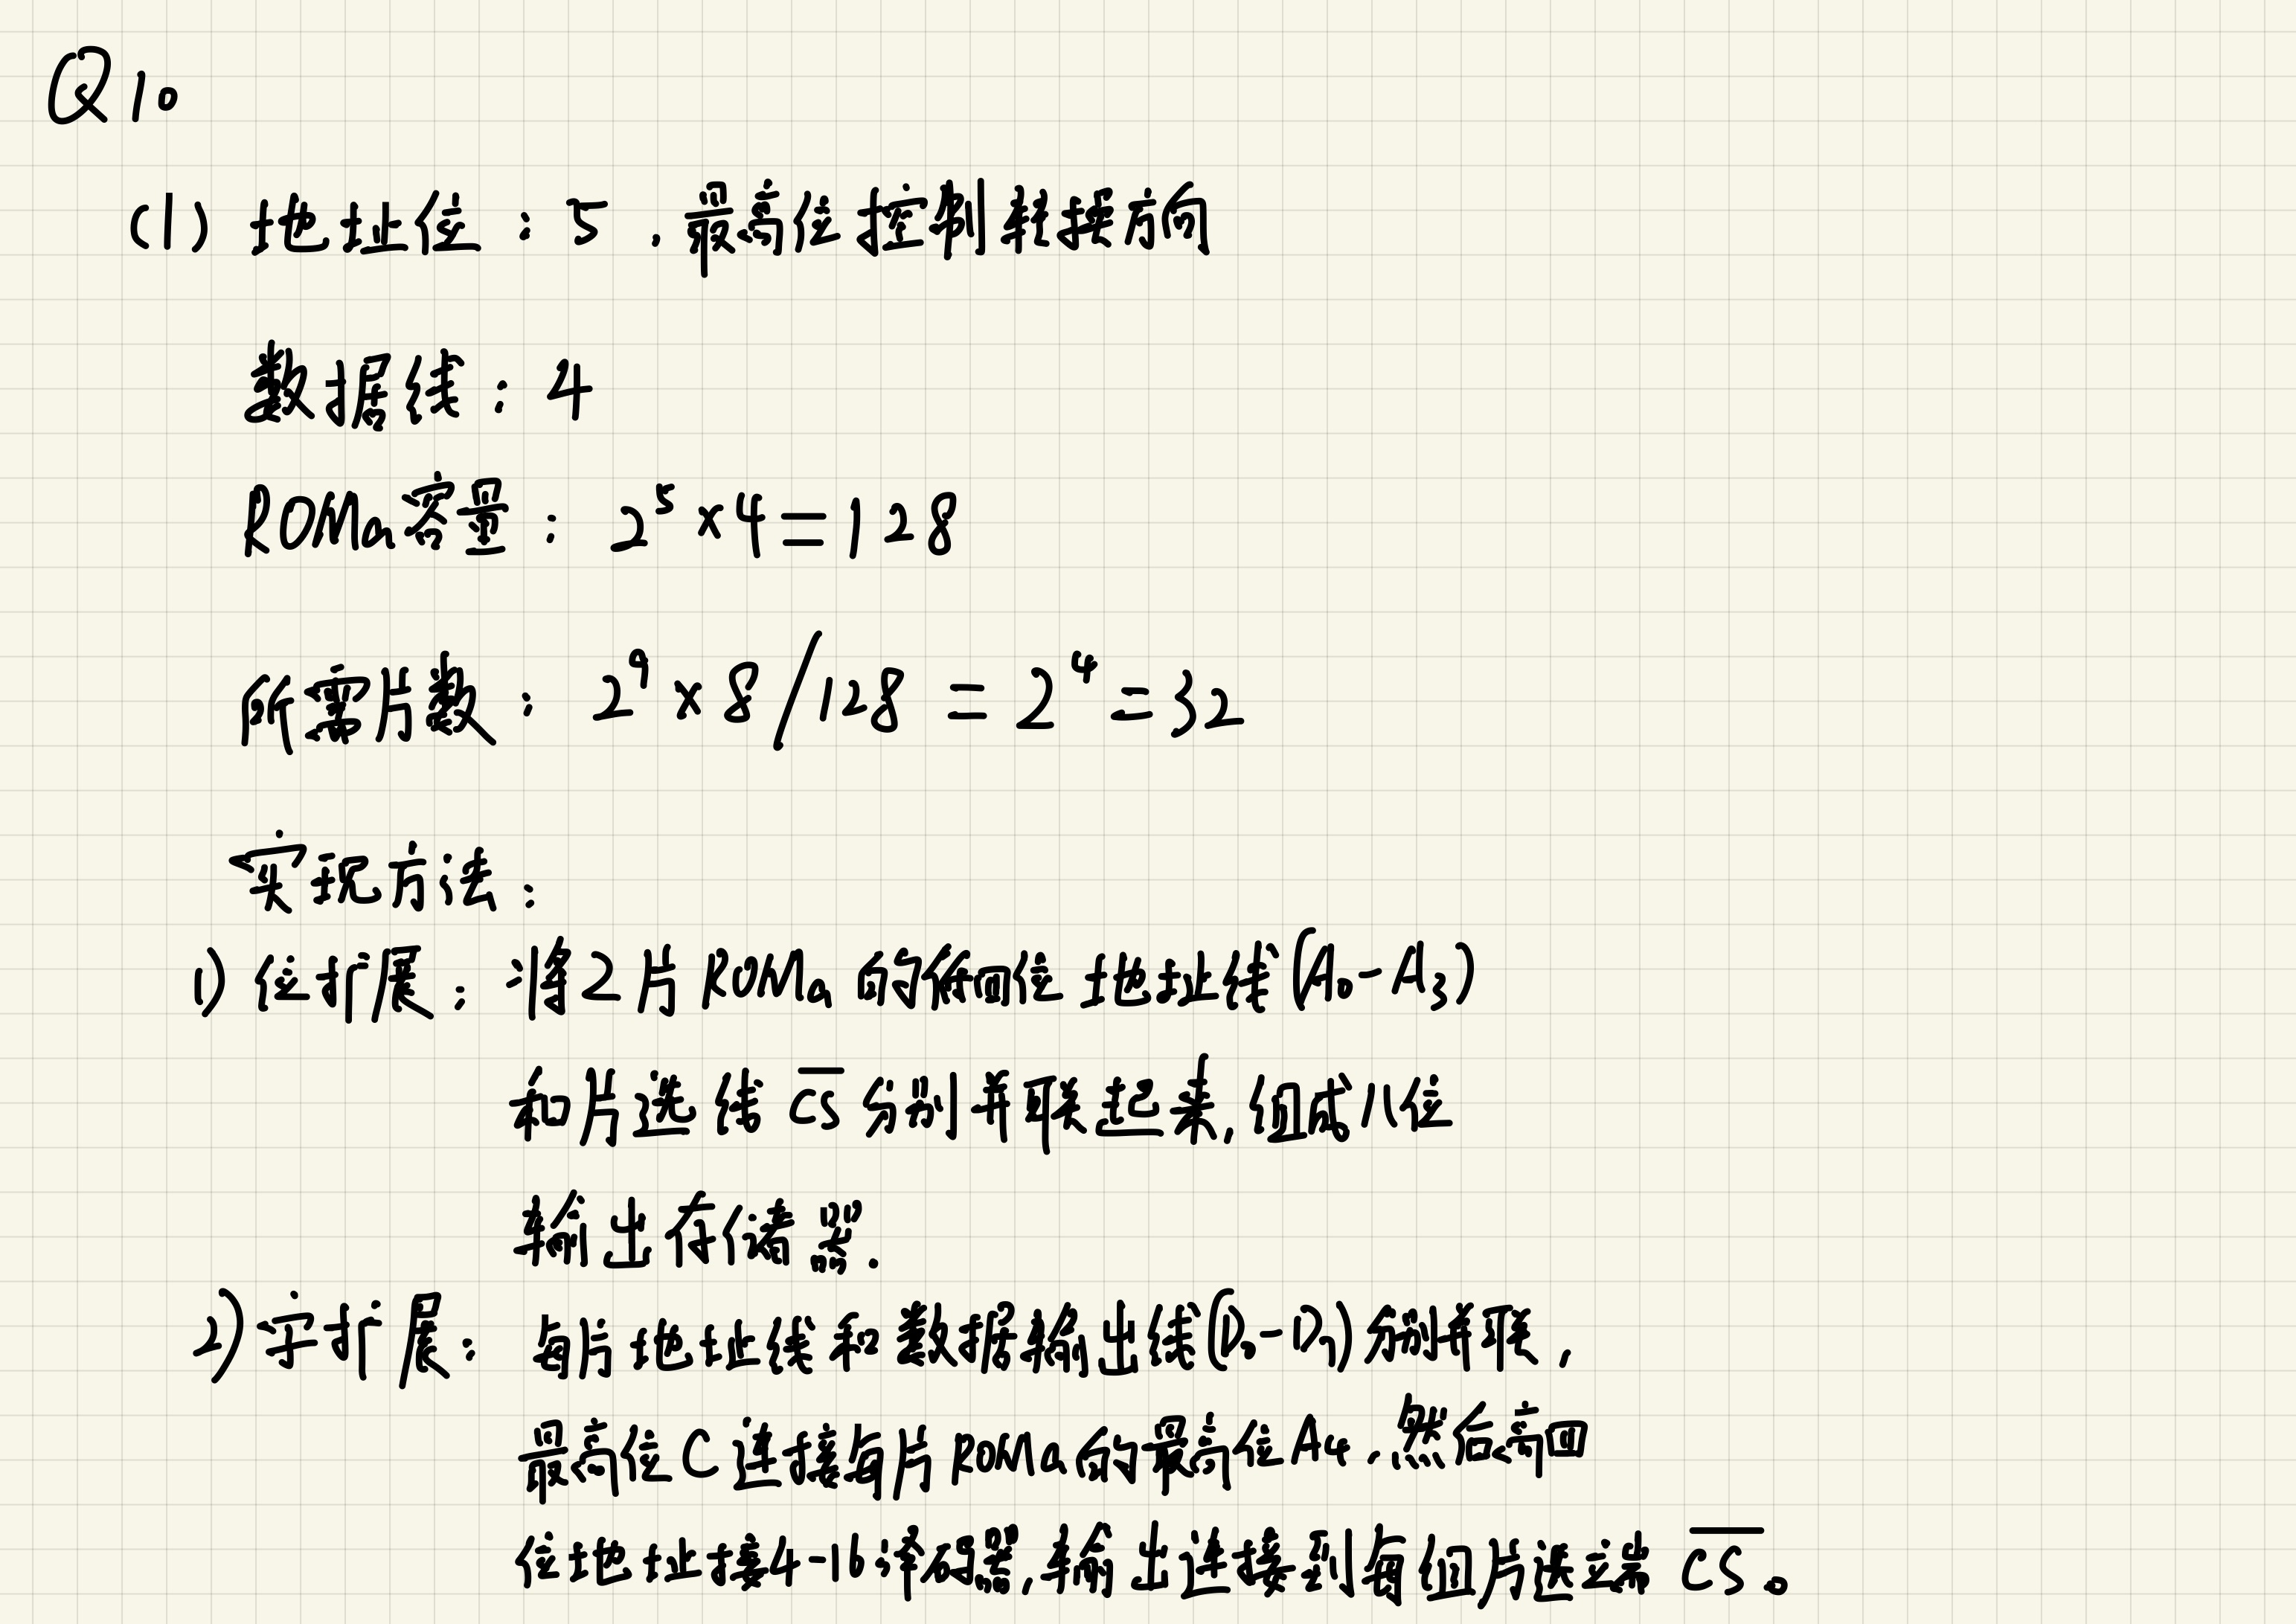 Q10
(1) 地址位：5，最高位控制转换方向
数据线：4
ROMa容量：2⁵×4=128
所需片数：2⁹×8/128=2⁴=32
实现方法：
1) 位扩展：将2片ROMa的低四位地址线(A₀-A₃)
和片选线 C̅S̅ 分别并联起来，组成八位
输出存储器.
2) 字扩展：每片地址线和数据输出线(D₀-D₇)分别并联，
最高位C连接每片ROMa的最高位A₄，然后高四
位地址接4-16译码器，输出连接到每组片选端 C̅S̅。